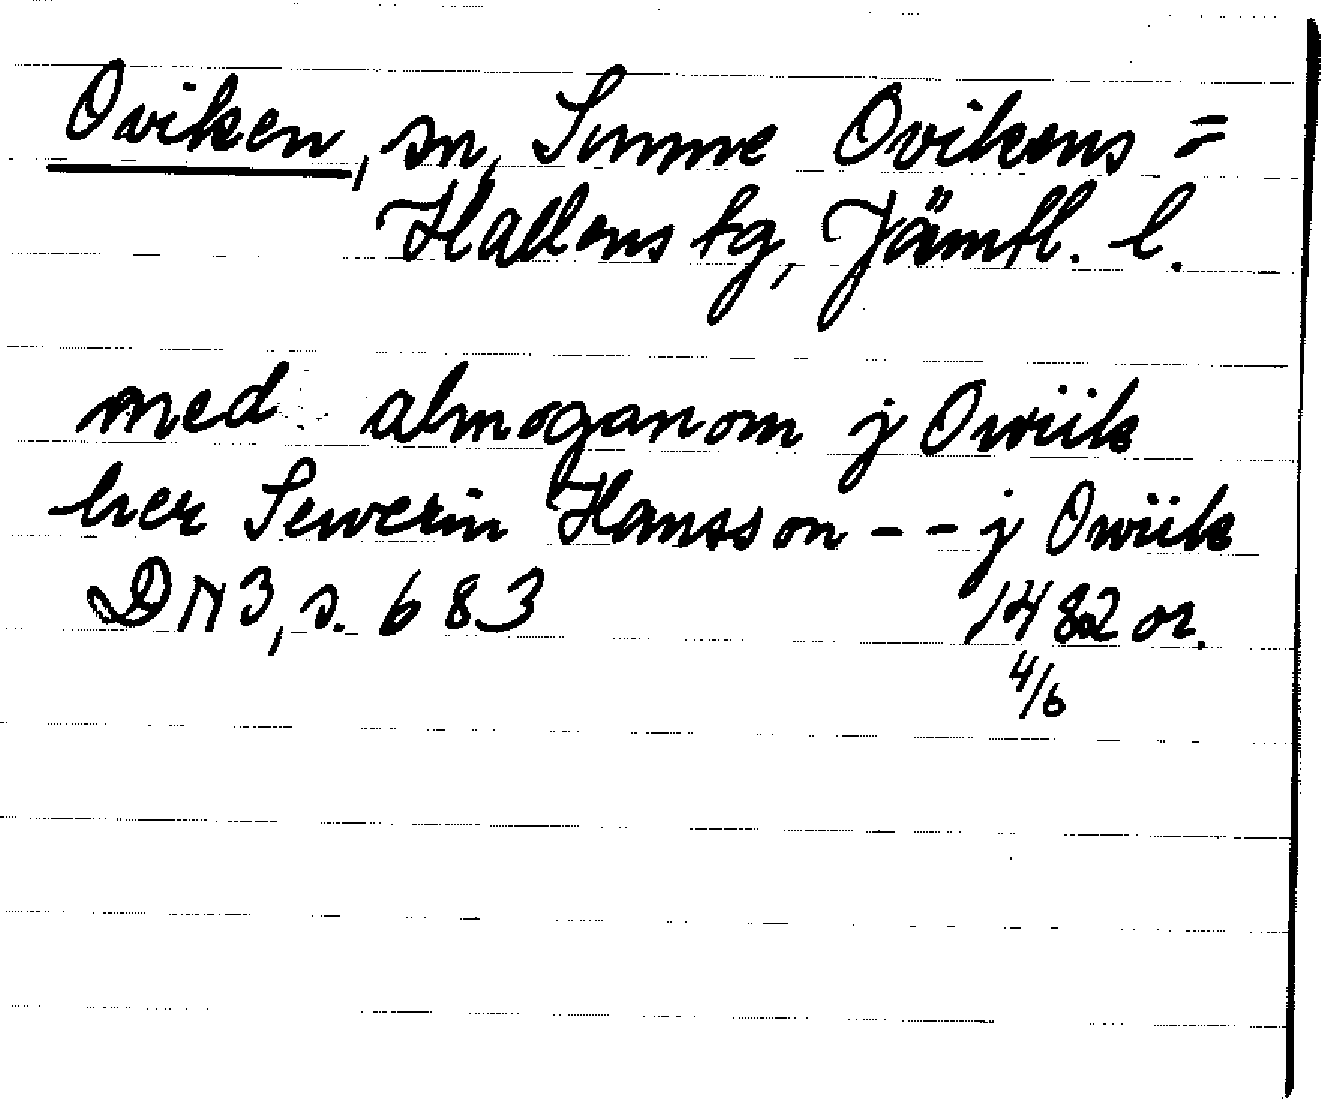 Oviken, sn, Sunne Ovikens =
Hallens tg, Jämtl. l.
med almoganom j Owiik
her Sewerin Hansson - - j Owiik
DN 3, s. 683 1482 or.
4/6